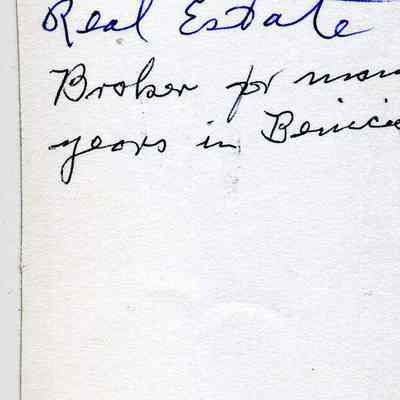 Real Estate
Broker for man
years in Benicia